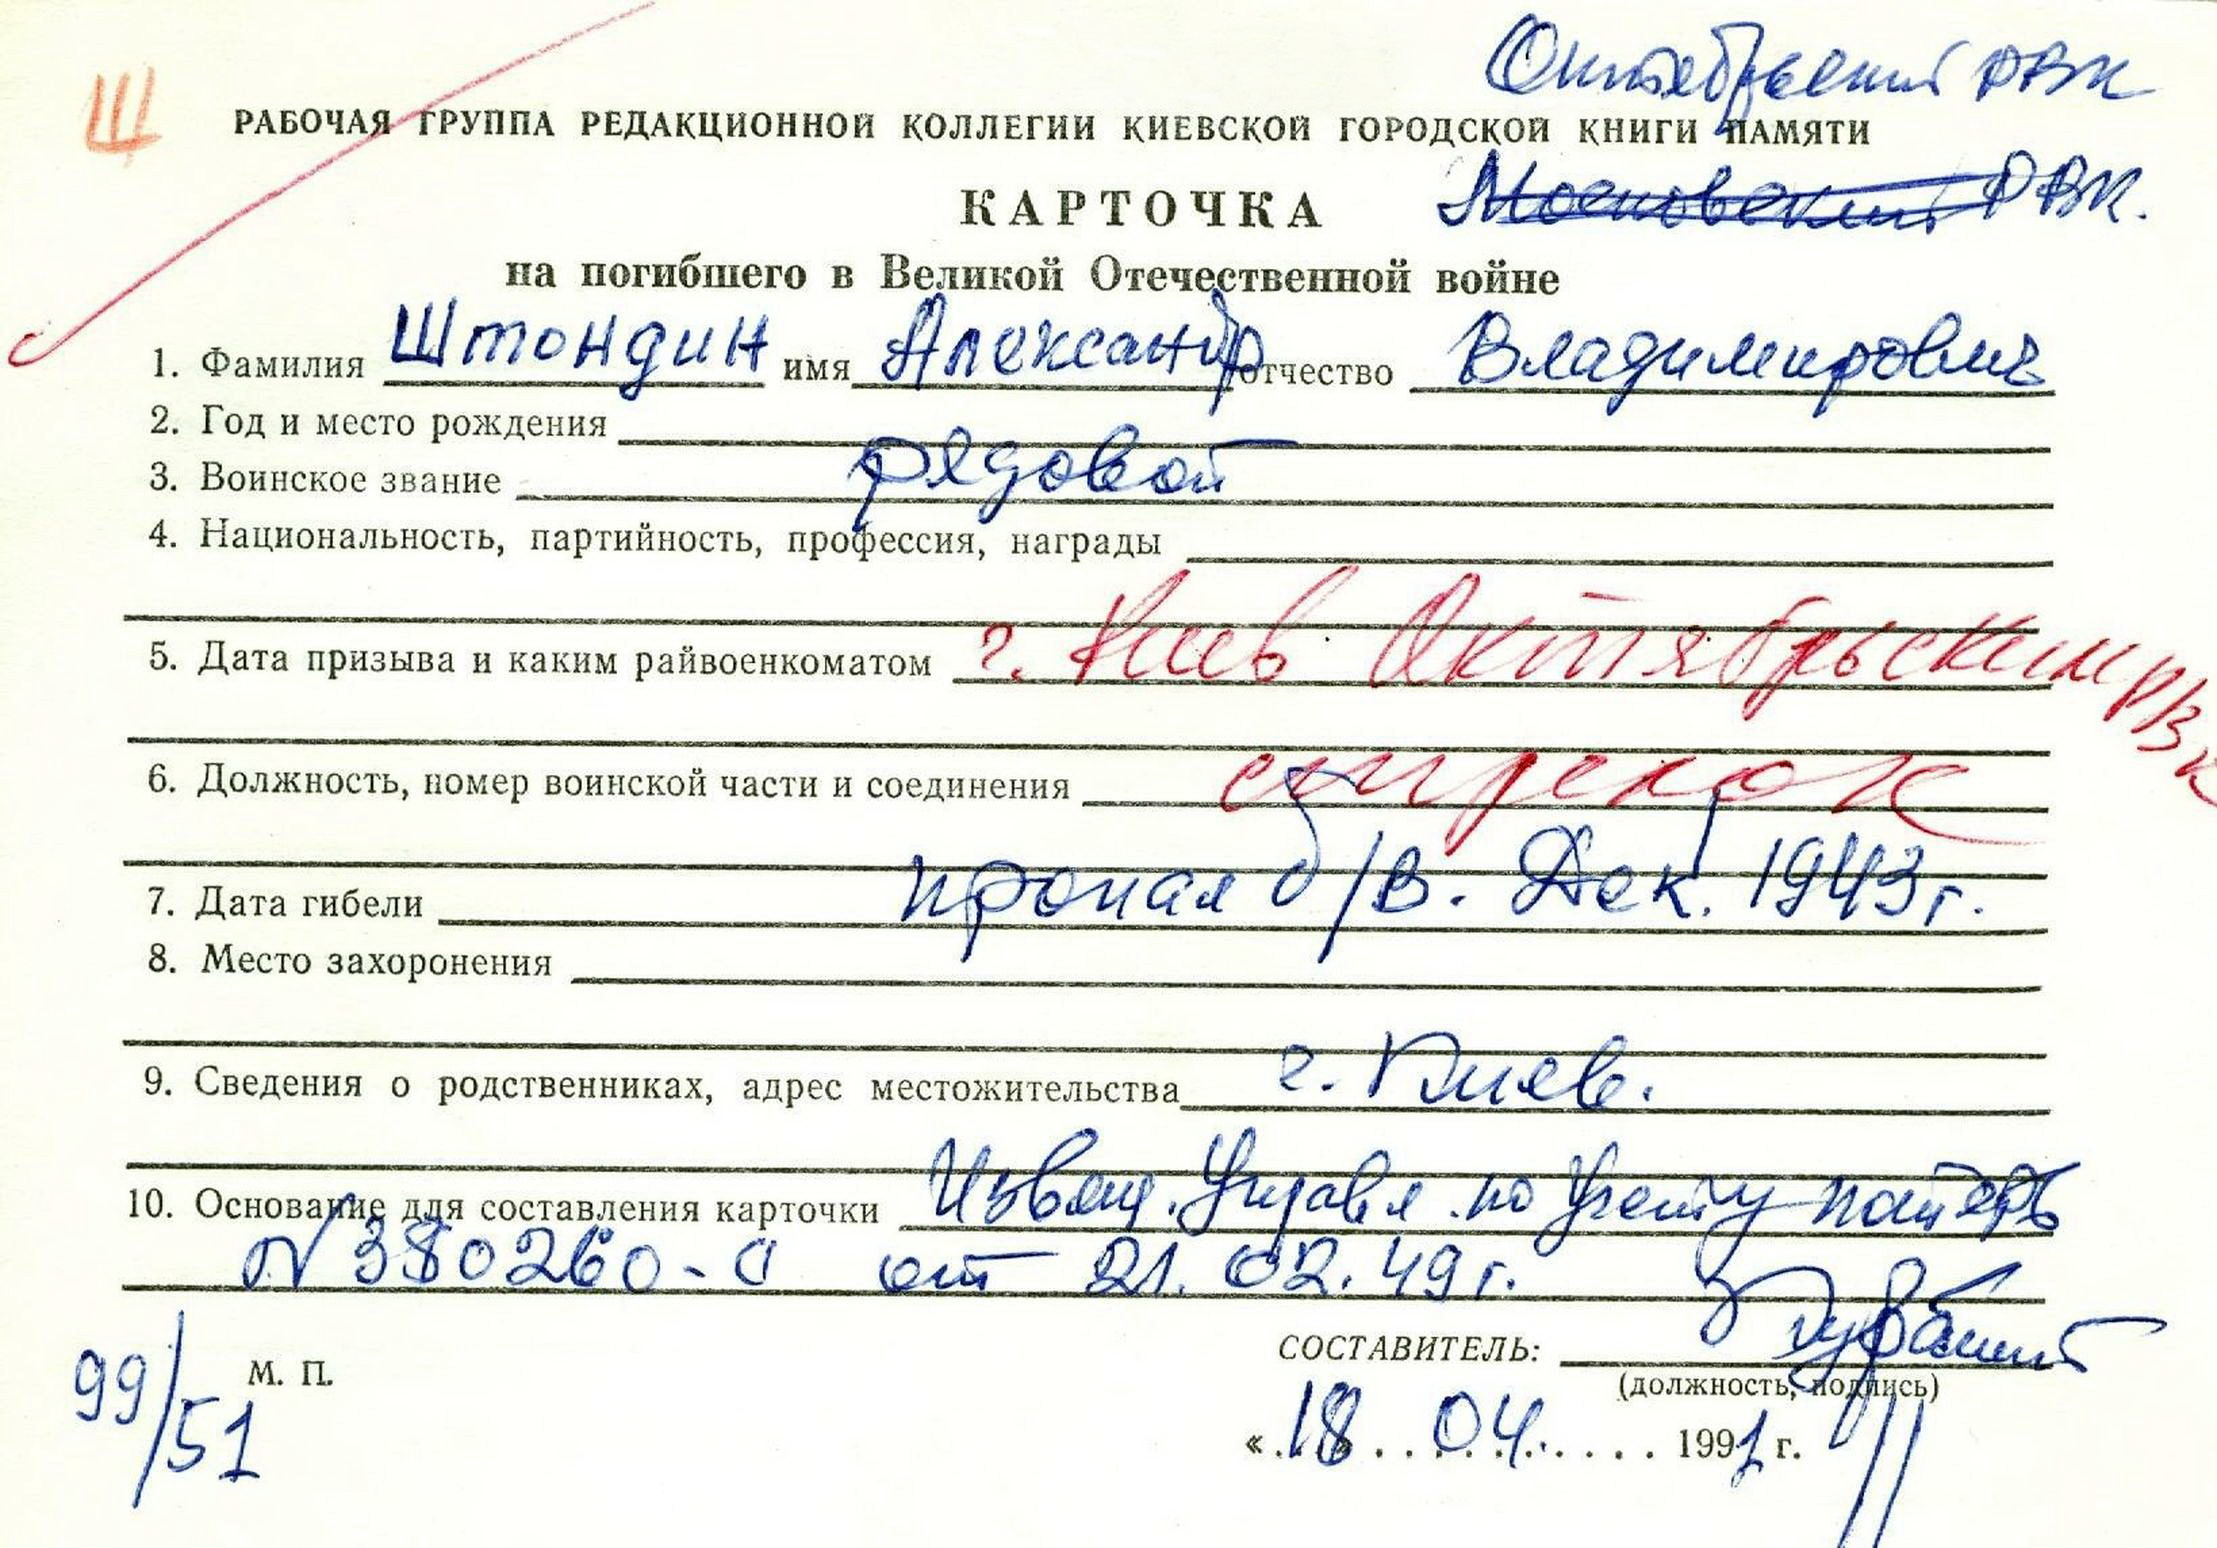 Октябрьский РВК
Щ
РАБОЧАЯ ГРУППА РЕДАКЦИОННОЙ КОЛЛЕГИИ КИЕВСКОЙ ГОРОДСКОЙ КНИГИ ПАМЯТИ
КАРТОЧКА Московский РВК.
на погибшего в Великой Отечественной войне
1. Фамилия Штондин имя Александр отчество Владимирович
2. Год и место рождения
3. Воинское звание рядовой
4. Национальность, партийность, профессия, награды
5. Дата призыва и каким райвоенкоматом г. Киев Октябрьским РВК
6. Должность, номер воинской части и соединения стрелок
7. Дата гибели пропал б/в. Дек. 1943 г.
8. Место захоронения
9. Сведения о родственниках, адрес местожительства г. Киев.
10. Основание для составления карточки Извещ. Управл. по Учету потерь
N 380260-с от 21.02.49 г.
СОСТАВИТЕЛЬ:
99/51 М. П.
(должность, подпись)
« 18 04. 1991 г.